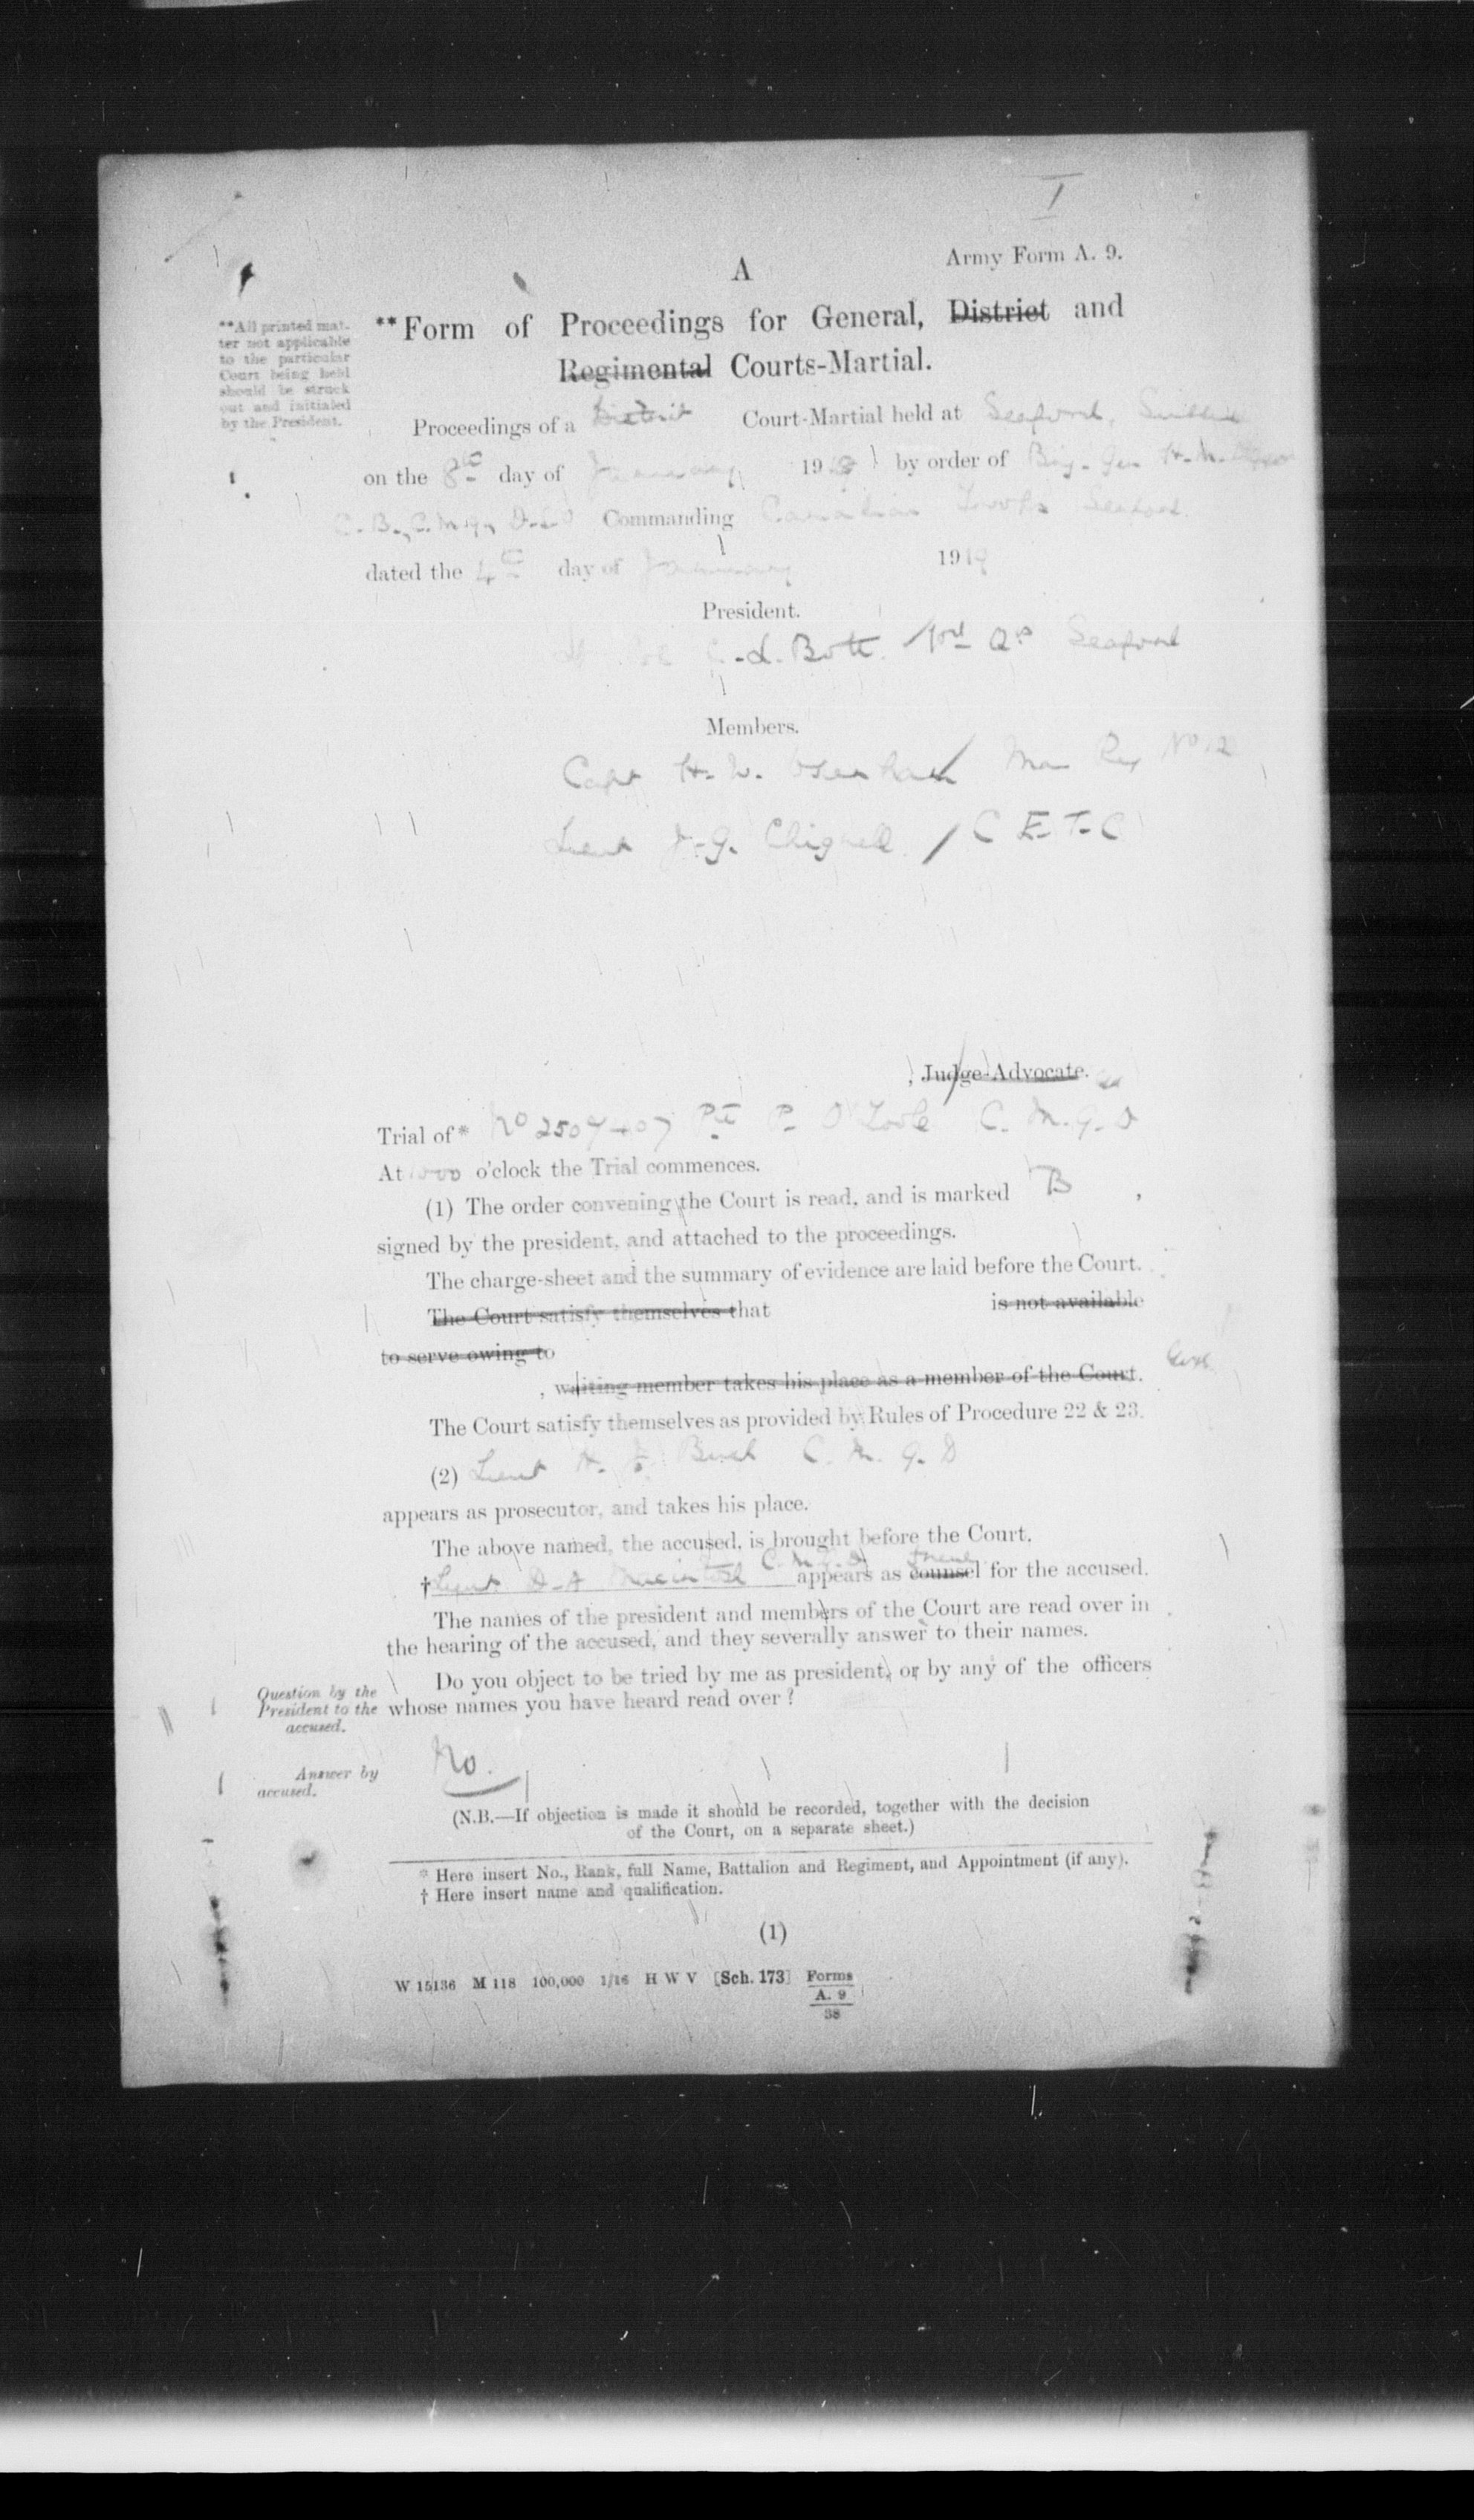 I
Army Form A. 9.
A
**Form of Proceedings for General, District and
Regimental Courts-Martial.
**All printed mat-
ter not applicable
to the particular
Court being held
should be struck
out and initialed
by the President.
Proceedings of a District Court-Martial held at Seaford,
on the 8th day of January 19 by order of Brig. Gen
C.B., C.M.G., D.S.O Commanding Canadian Troops Seaford.
dated the 4th day of January 1919
President.
L. Bott. Seaford
Members.
Capt H. W.
Lieut J. G. Chignell / C E. T. C
Judge-Advocate.
Trial of* No Pte P. O'Toole C. M. G. D
At 1000 o'clock the Trial commences.
(1) The order convening the Court is read, and is marked B ,
signed by the president, and attached to the proceedings.
The charge-sheet and the summary of evidence are laid before the Court.
The Court satisfy themselves that is not available
to serve owing to
, waiting member takes his place as a member of the Court.
The Court satisfy themselves as provided by Rules of Procedure 22 & 23.
(2) Lieut C. M. G. D
appears as prosecutor, and takes his place.
The above named, the accused, is brought before the Court.
†Lieut D. A Macintosh C. M. G. D appears as counsel friend for the accused.
The names of the president and members of the Court are read over in
the hearing of the accused, and they severally answer to their names.
Question by the
President to the
accused.
Do you object to be tried by me as president, or by any of the officers
whose names you have heard read over ?
Answer by
accused.
No.
(N.B.—If objection is made it should be recorded, together with the decision
of the Court, on a separate sheet.)
* Here insert No., Rank, full Name, Battalion and Regiment, and Appointment (if any).
† Here insert name and qualification.
(1)
W 15136 M 118 100,000 1/16 H W V [Sch. 173] Forms
A. 9
38